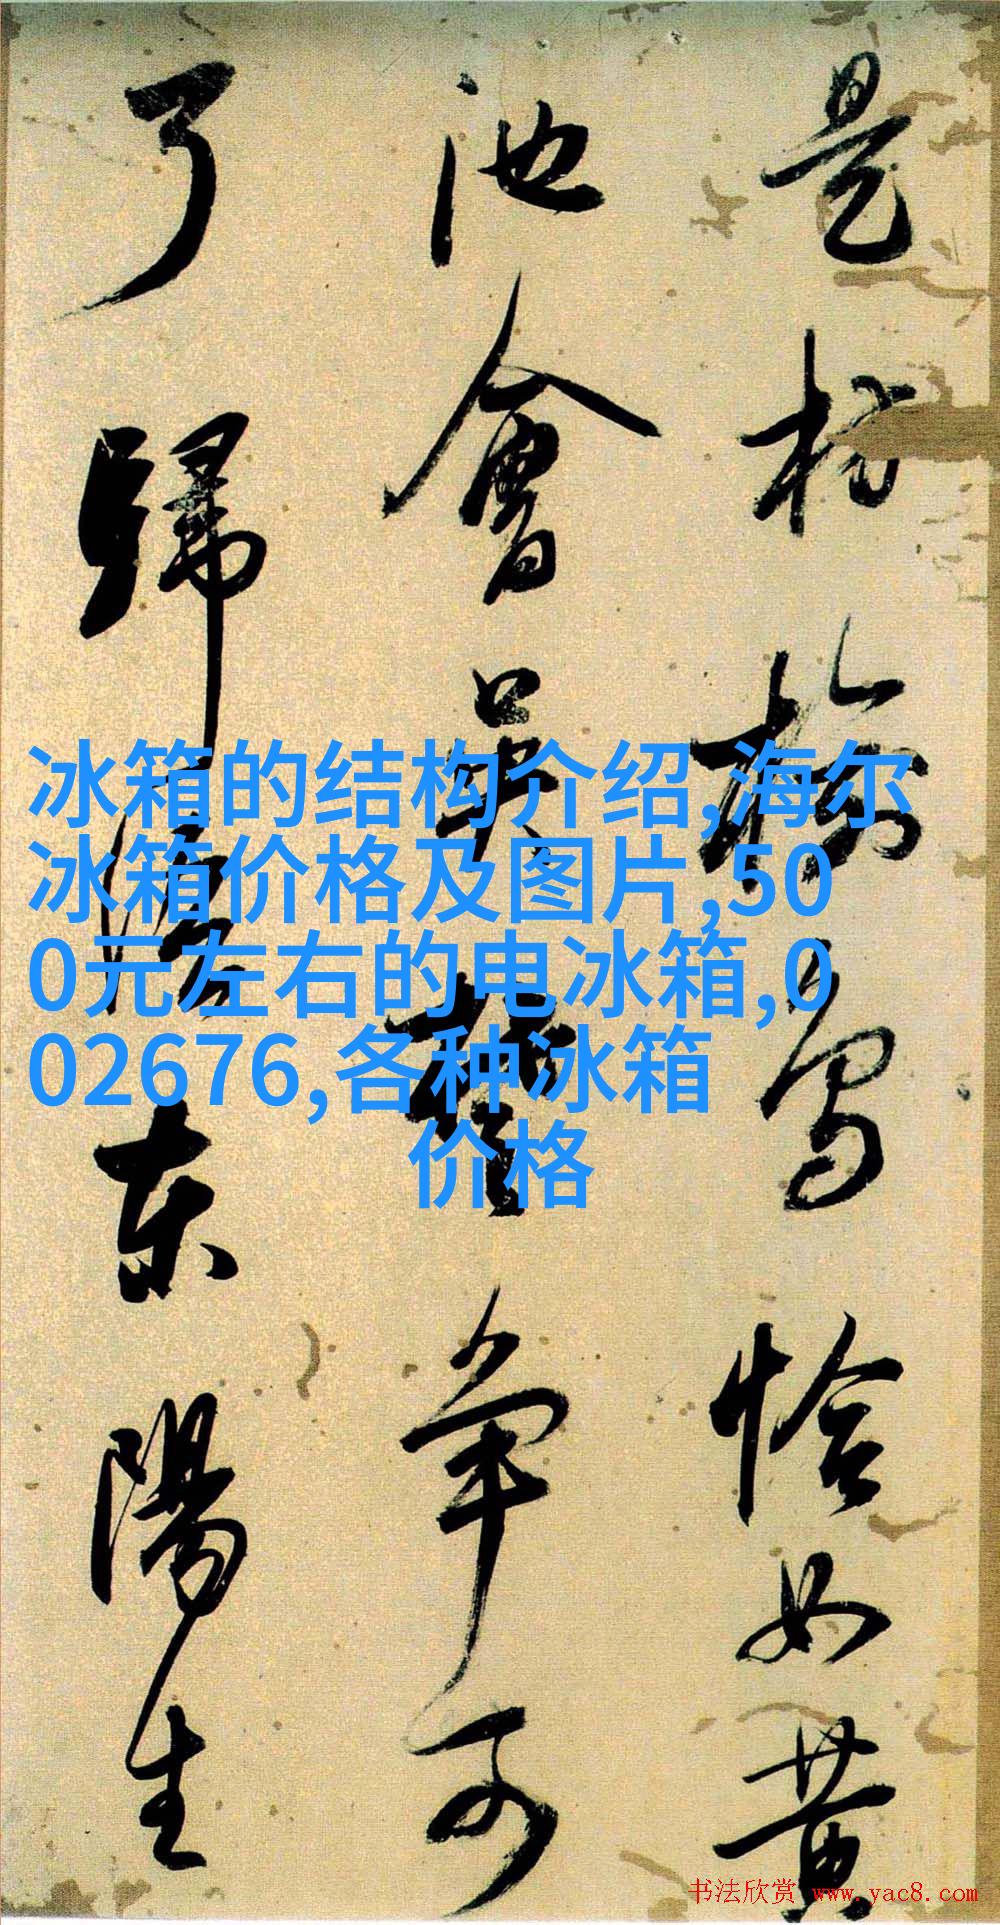 是枋榆高恰如黄
池會吴楚争可
了歸
东陽生
冰箱的结构介绍,海尔
冰箱价格及图片,50
0元左右的电冰箱,0
02676,各种冰箱
价格
书法欣赏 www.yac8.com